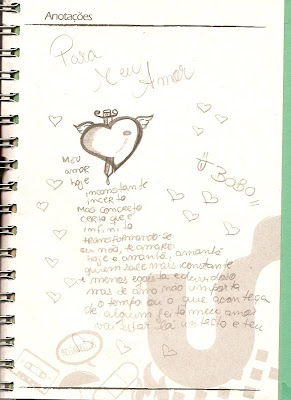 Anotações
Para
Meu
Amor
Meu
amor
hoje
inconstante
incerto
mas concreto
certo que é
infinito
transformando-se
ou não, te amarei
hoje e amanhã, amanhã
quem sabe mais constante
e menos egoísta e duvidoso
mas de amo não importa
o tempo ou o que aconteça
de algum jeito meu amor
vai estar lá
BOBO